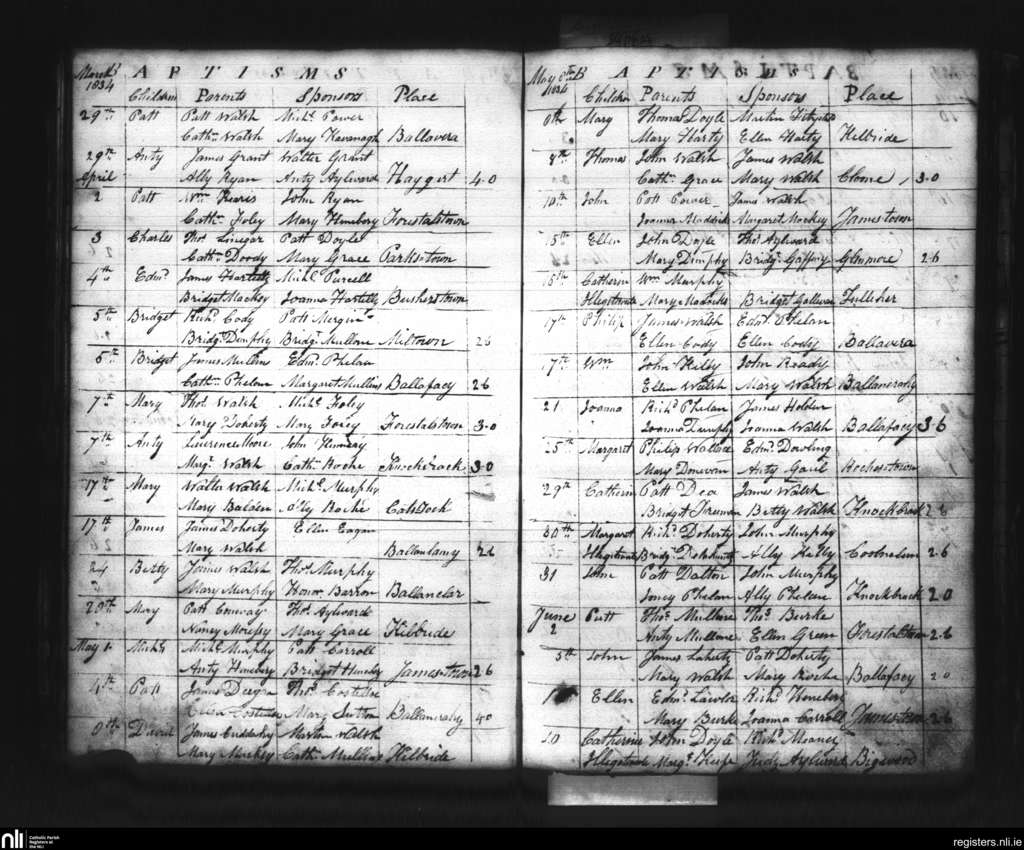 March 1834 BAPTISMS
Children Parents Sponsors Place
29th Patt Patt Walsh Michl. Power
Cathn. Walsh Mary Kavanagh Ballavera
29th Anty James Grant Walter Grant
April Ally Ryan Anty Aylward Haggert 4-0
2 Patt Wm. John Ryan
Cathn. Foley Mary Forestalstown
3 Charles Thos. Linegar Patt Doyle
Cathn. Doody Mary Grace Parkstown
4th Edmd. James Michl. Purcell
Bridget Mackey Joanna
5th Bridget Richd. Cody Patt
Bridgt. Dunphy Bridgt. Mullone Miltown 2 6
5th Bridget James Mullins Edmd. Phelan
Cathn. Phelan Margaret Mullins Ballafacy 2 6
7th Mary Thos. Walsh Michl. Foley
Mary Doherty Mary Foley Forestalstown 3-0
7th Anty Lawrence Moore John
Margt. Walsh Cathn. Roche Knockbrack 3-0
17th Mary Walter Walsh Michl. Murphy
Mary Ally Roche
17th James James Doherty Ellen Eagan
Mary Walsh 2 6
24 Betty James Walsh Thos. Murphy
Mary Murphy Honor Barron Ballanclar
29th Mary Patt Conway Thos. Aylward
Nancy Mary Grace Kilbride
May 1 Michl. Michl. Murphy Patt Carroll
Anty Bridget Jamestown 2 6
4th Patt James Thos. Costelloe
Mary Sutton Ballaneraby 4 0
8th David James Cuddihy Martin Walsh
Mary Cathn. Mullins Kilbride
May 8th 1834 BAPTISMS
Children Parents Sponsors Place
8th Mary Thomas Doyle Martin
Mary Harty Ellen Harty Kilbride
8th Thomas John Walsh James Walsh
Cathn. Grace Mary Walsh Clone 3-0
10th John Patt Power James Walsh
Joanna Maddock Margaret Mackey Jamestown
15th Ellen John Doyle Thos. Aylward
Mary Dunphy Bridgt. Gaffney Glenmore 2 6
15th Catherin Wm. Murphy
Illegitimate Mary Maddocks Bridget Tullaher
17th Philip James Walsh Edmd. Phelan
Ellen Cody Ellen Cody Ballavera
17th Wm John Kelly John Ready
Ellen Walsh Mary Walsh Ballaneraby
21 Joanna Richd. Phelan James Holden
Joanna Dunphy Joanna Walsh Ballafacy 3-6
25th Margaret Philip Wallace Edmd. Dowling
Mary Donevan Anty Gaul Rochestown
29th Catherin Patt Dea James Walsh
Bridget Freeman Betty Walsh Knockbrack 2 6
30th Margaret Richd. Doherty John Murphy
Illegitimate Bridgt. Ally Kelly 2 6
31 John Patt Dalton John Murphy
Joney Phelan Ally Phelan Knockbrack 2 0
June Patt Thos. Mullone Thos. Burke
2 Anty Mullone Ellen Green Forestalstown 2-6
5th John James Patt Doherty
Mary Walsh Mary Roche Ballafacy 2 0
Ellen Edmd. Lawlor Richd.
Mary Burke Joanna Carroll Jamestown 2 6
10 Catherine John Doyle Richd.
Illegitimate Margt. Keefe Judy Aylward Bigwood
nli
Catholic Parish
Registers at
the NLI
registers.nli.ie